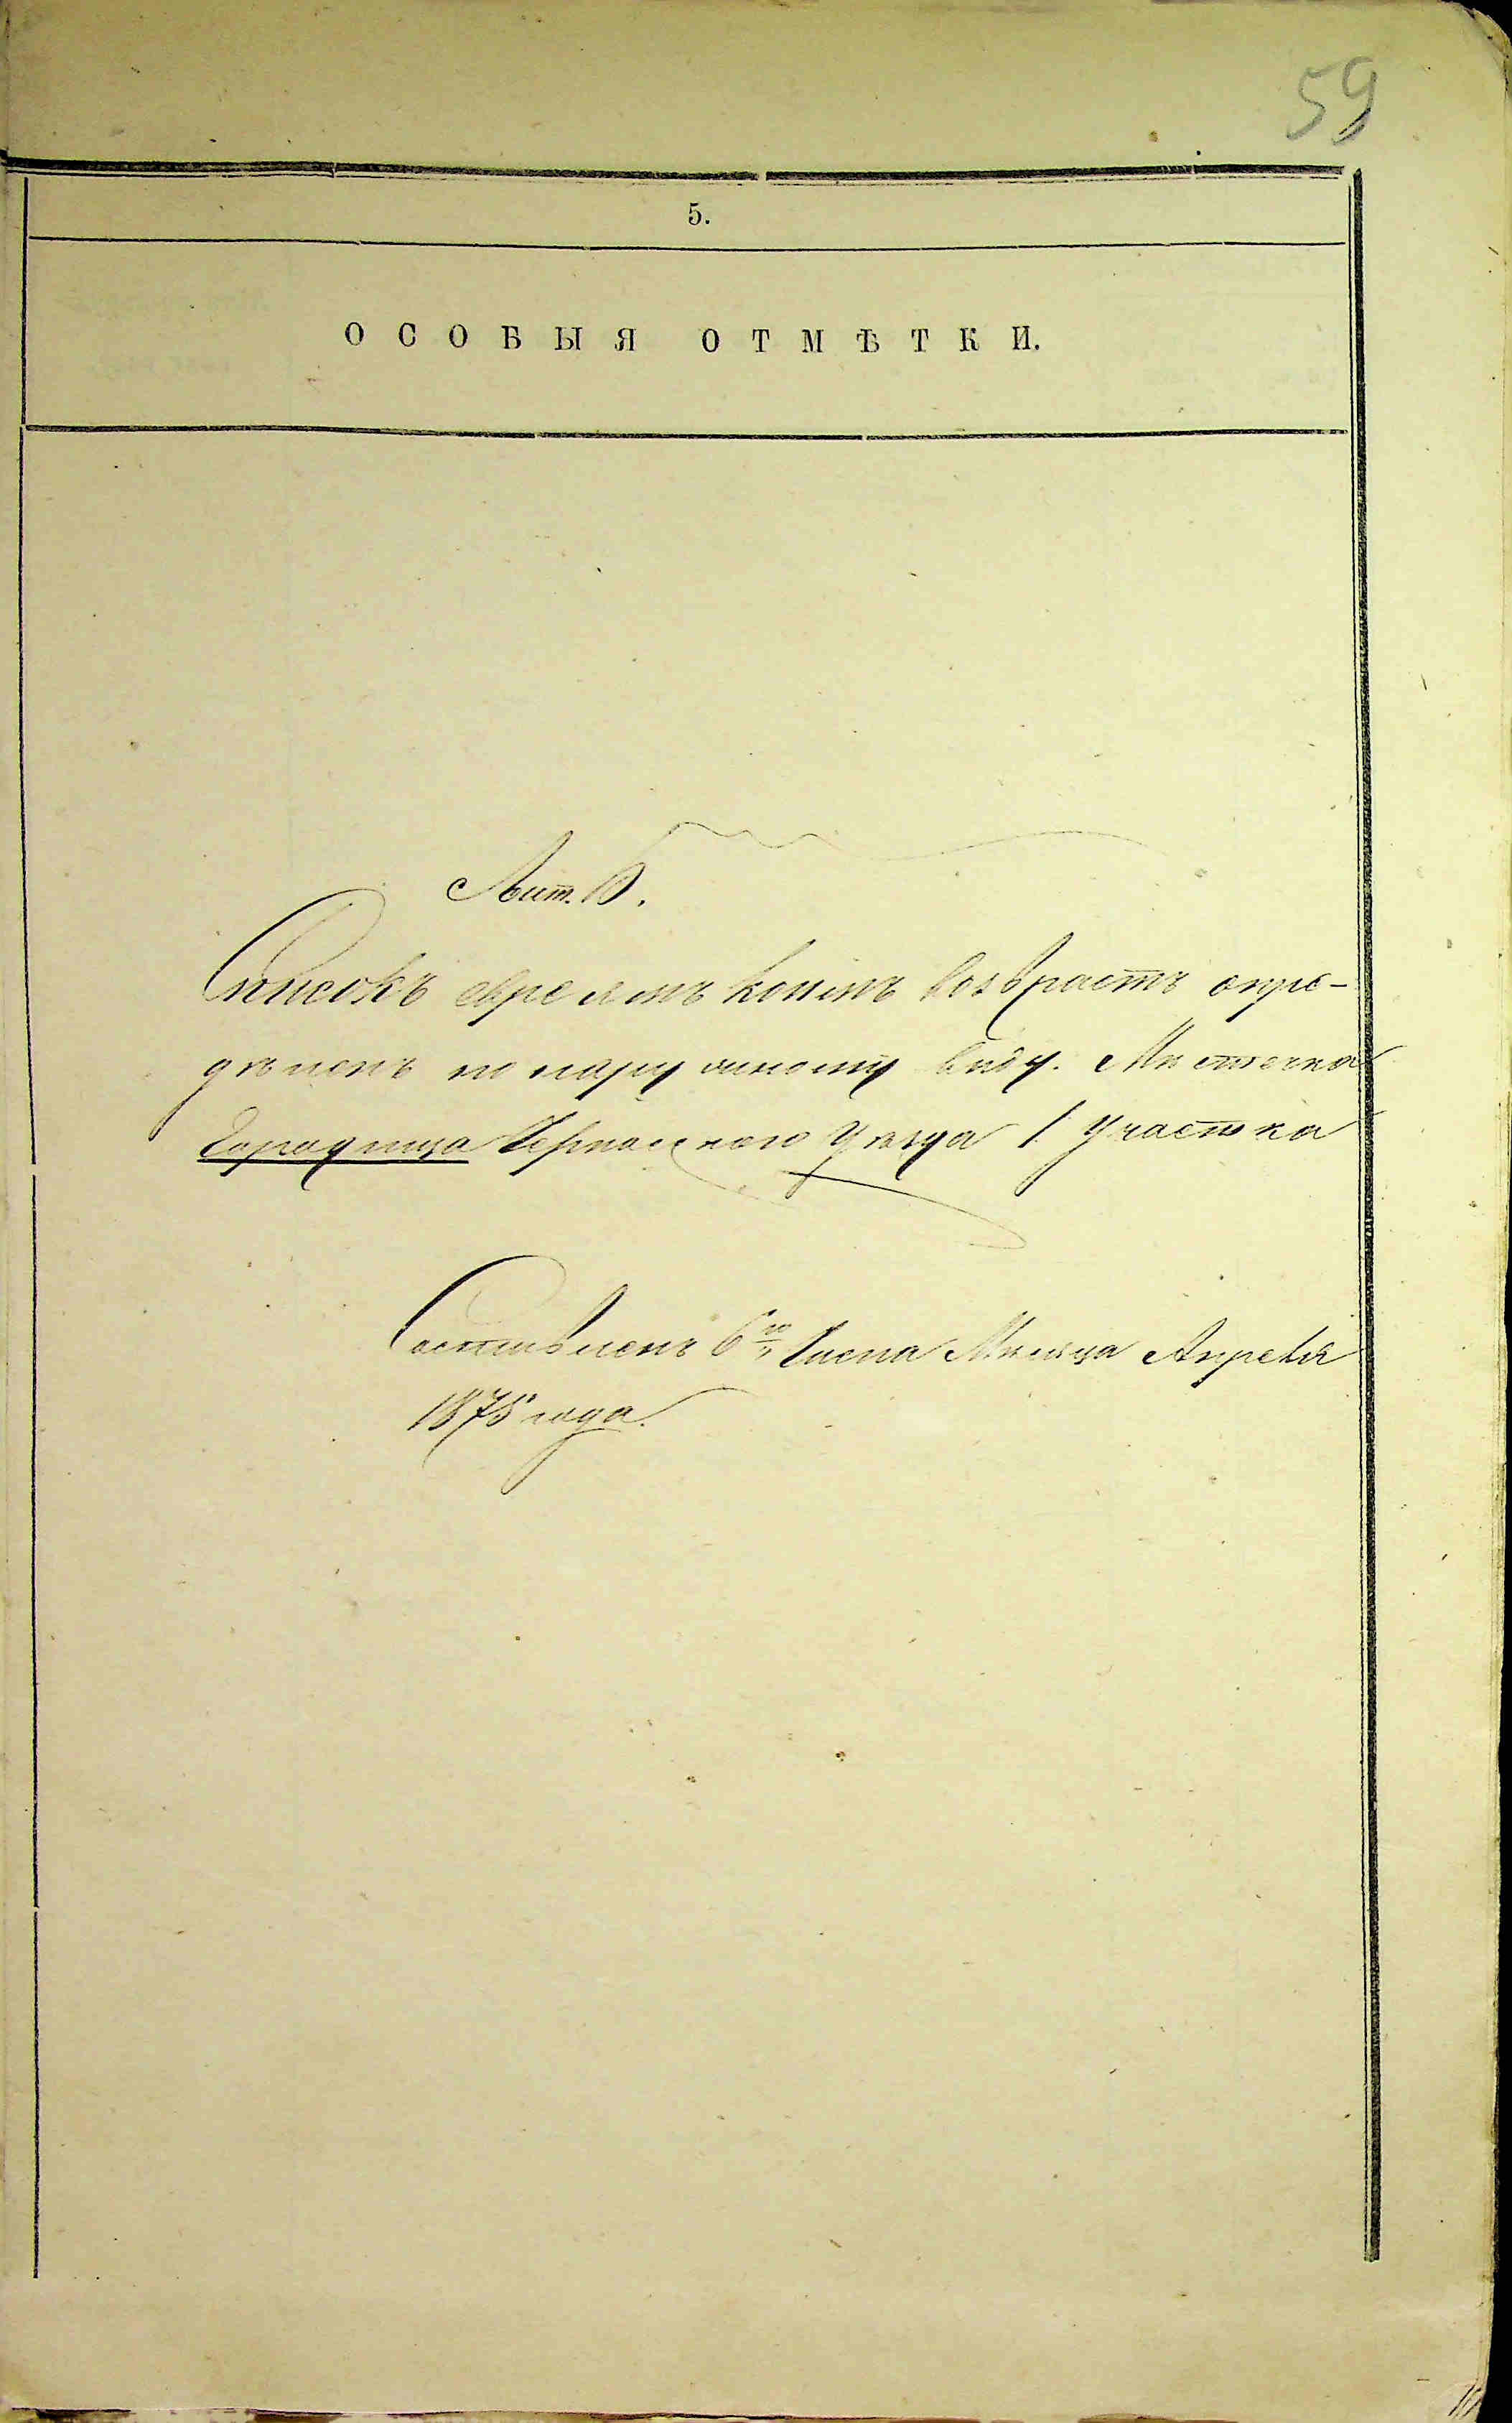 59
5.
ОСОБЫЯ ОТМѢТКИ.
Лит. В.
Списокъ евреямъ коимъ возврастъ опре-
дѣленъ по наружному виду. Мѣстечка
Городища Черкасскаго Уѣзда 1 Участка
Составленъ 6го Числа Мѣсяца Апреля
1875 года.